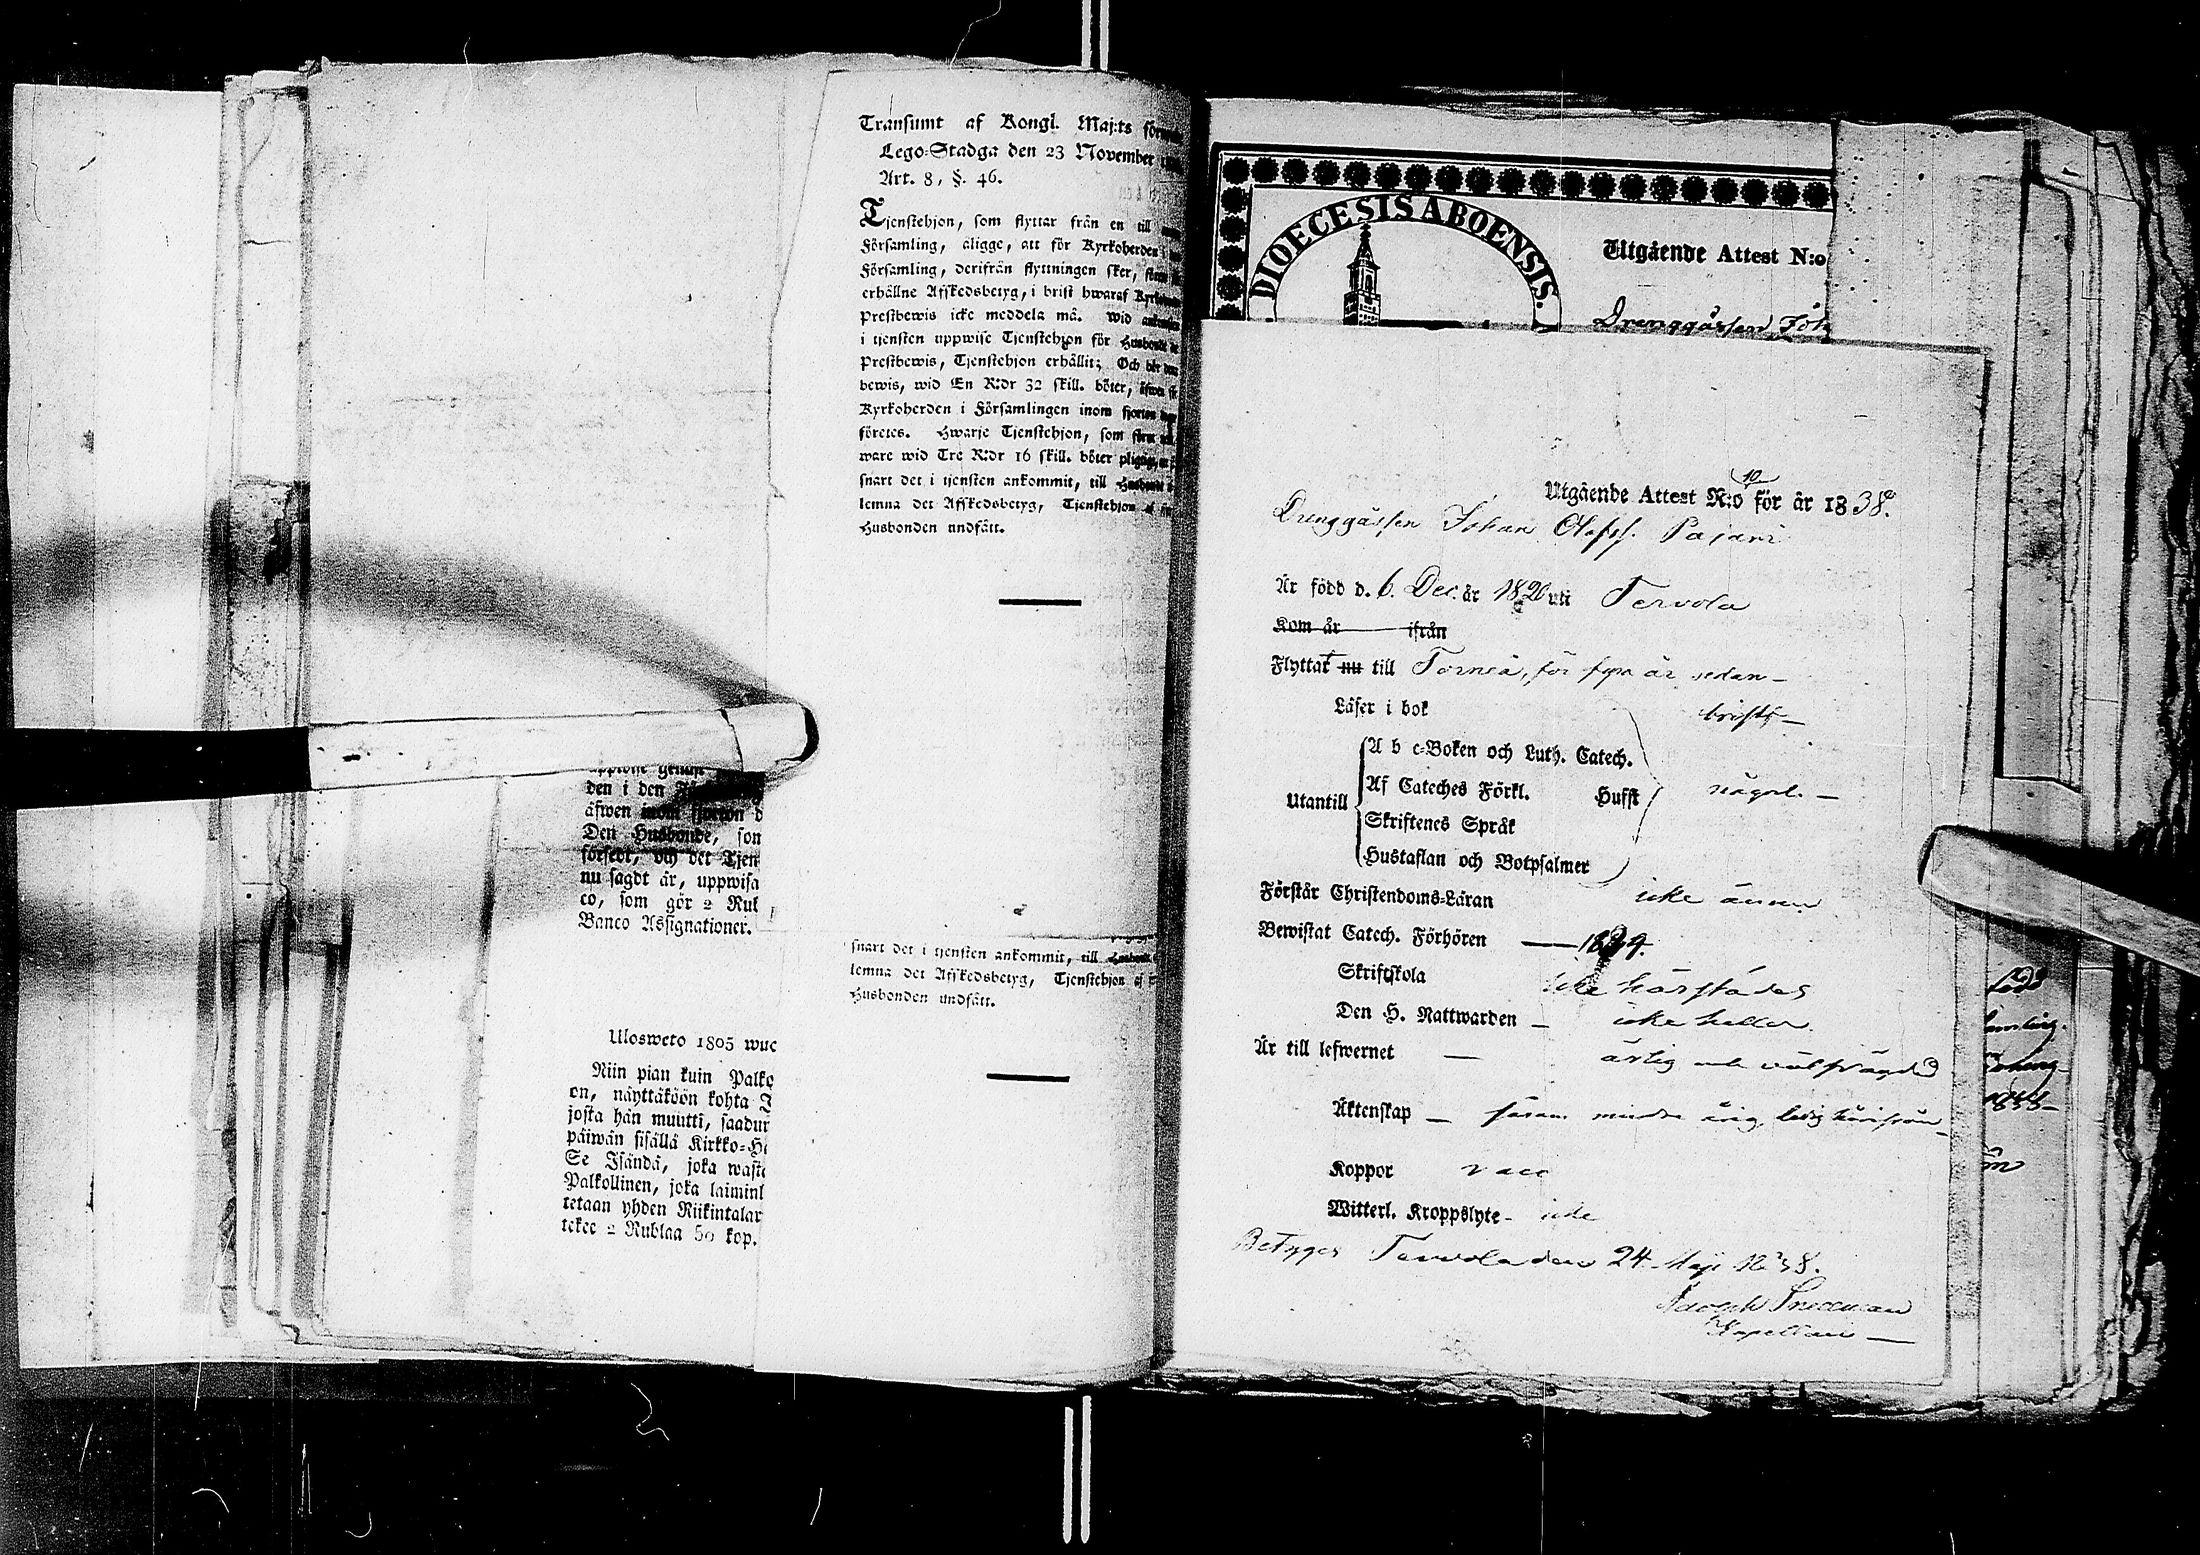 Transumt af Kongl. Maj:ts
Lego-Stadga den 23 November
Art. 8, §. 46.
Tjenstehjon, som flyttar från en till
Församling, åligge, att för Kyrkoherden
Församling, derifrån flyttningen sker,
erhållne Afskedsbetyg, i brist hwaraf
Prestbewis icke meddela må. Wid
i tjensten uppwise Tjenstehjon för Husbonde
Prestbewis, Tjenstehjon erhållit; Och bör
bewis, wid En R:dr 32 skill. böter,
Kyrkoherden i Församlingen inom fjorton
företes. Hwarje Tjenstehjon, som
ware wid Tre R:dr 16 skill. böter
snart det i tjensten ankommit, till
lemna det Afskedsbetyg, Tjenstehjon af
Husbonden undfått.
den i den
äfwen inom fjorton d
Den Husbonde, son
försedt, och det Tjen
nu sagdt är, uppwisa
co, som gör 2 Rul
Banco Assignationer.
snart det i tjensten ankommit, till
lemna det Afskedsbetyg, Tjenstehjon af
Husbonden undfått.
Ulosweto 1805 wuc
Niin pian kuin Palko
on, näyttäköön kohta
josta hän muutti, saadun
päiwän sisällä Kirkko-H
Se Isändä, joka waste
Palkollinen, joka laiminl
tetaan yhden Riikintalar
tekee 2 Rublaa 50 kop.
DIOECESIS ABOENSIS.
Utgående Attest N:o
Drenggåssen Joh
Utgående Attest N:o 10 för år 1838.
Drenggåssen Johan Olofss. Pajari
Är född d. 6. Dec. år 1820 uti Tervola
Kom år ifrån
Flyttat nu till Torneå, för fyra år sedan –
Läser i bok
Utantill
A b c-Boken och Luth. Catech.
Af Cateches Förkl. Hufst någorl. –
Skriftenes Språk
Hustaflan och Botpsalmer
Förstår Christendoms-Läran icke ännu
Bewistat Catech. Förhören —
Skriftskola icke härstädes
Den H. Nattwarden – icke heller.
Är till lefwernet — ärlig och välfrägdad
Äktenskap – såsom minderårig, ledig härifrån –
Koppor vacc
Witterl. Kroppslyte – icke
Betyger Tervola den 24 Maji 1838.
Adolph Snellman
Kapellan —
född